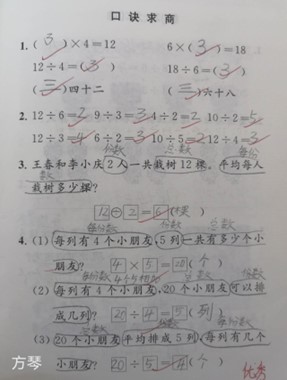 口诀求商
1. (3)×4=12 6×(3)=18
12÷4=(3) 18÷6=(3)
(三)四十二 (三)六十八
2. 12÷6=2 9÷3=3 4÷2=2 10÷2=5
12÷3=4 6÷2=3 10÷5=2 12÷4=3
份数 总数 每份
3. 王春和李小庆2人一共栽树12棵,平均每人
数
栽树多少棵?
12÷2=6(棵)
每份数 份数 总数
4. (1) 每列有4个小朋友,5列一共有多少个小
朋友? 4×5=20(个)
每份数 总数 份数
(2) 每列有4个小朋友,20个小朋友可以排
成几列? 20÷4=5(列)
总数 份数 每份数
(3) 20个小朋友平均排成5列,每列有几个
小朋友? 20÷5=4(个)
优秀
方琴